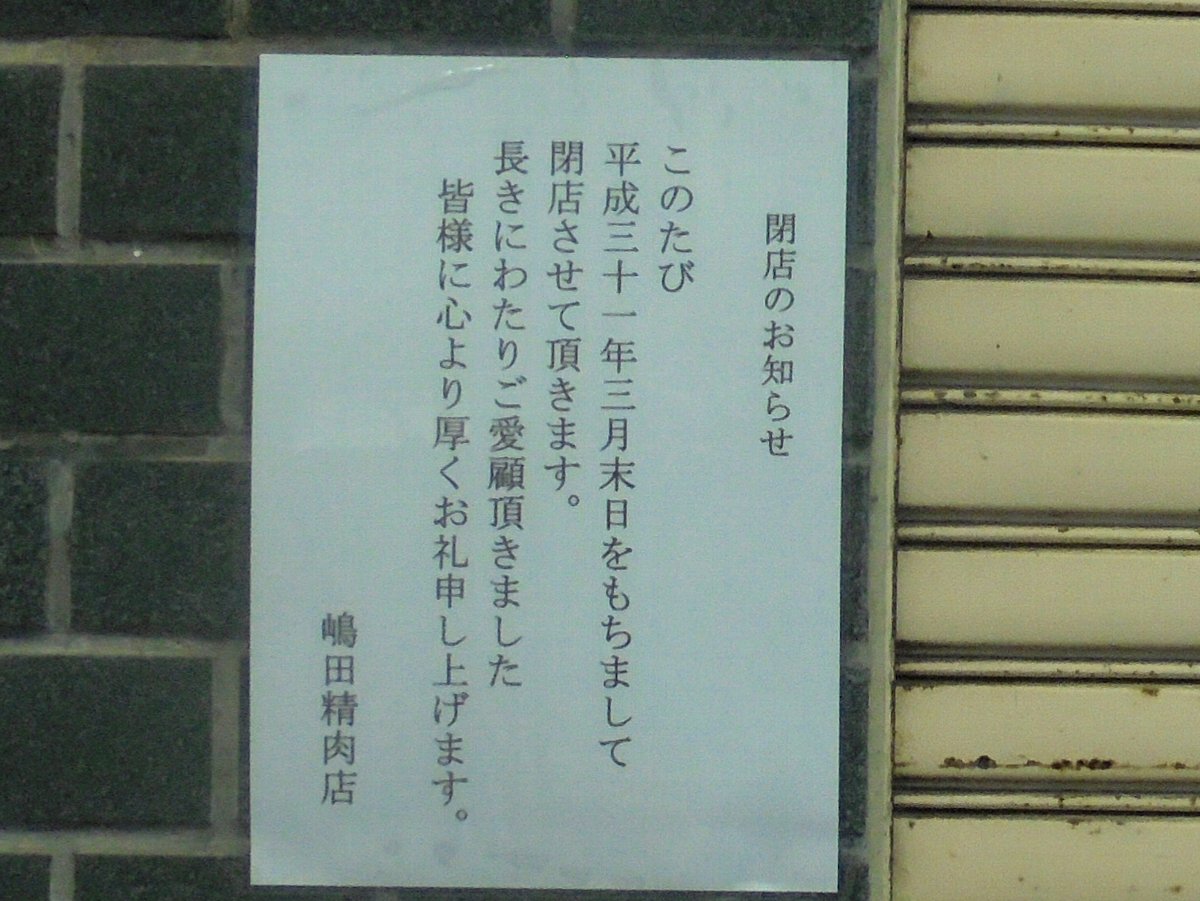 閉店のお知らせ
このたび
平成三十一年三月末日をもちまして
閉店させて頂きます。
長きにわたりご愛顧頂きました
皆様に心より厚くお礼申し上げます。
嶋田精肉店